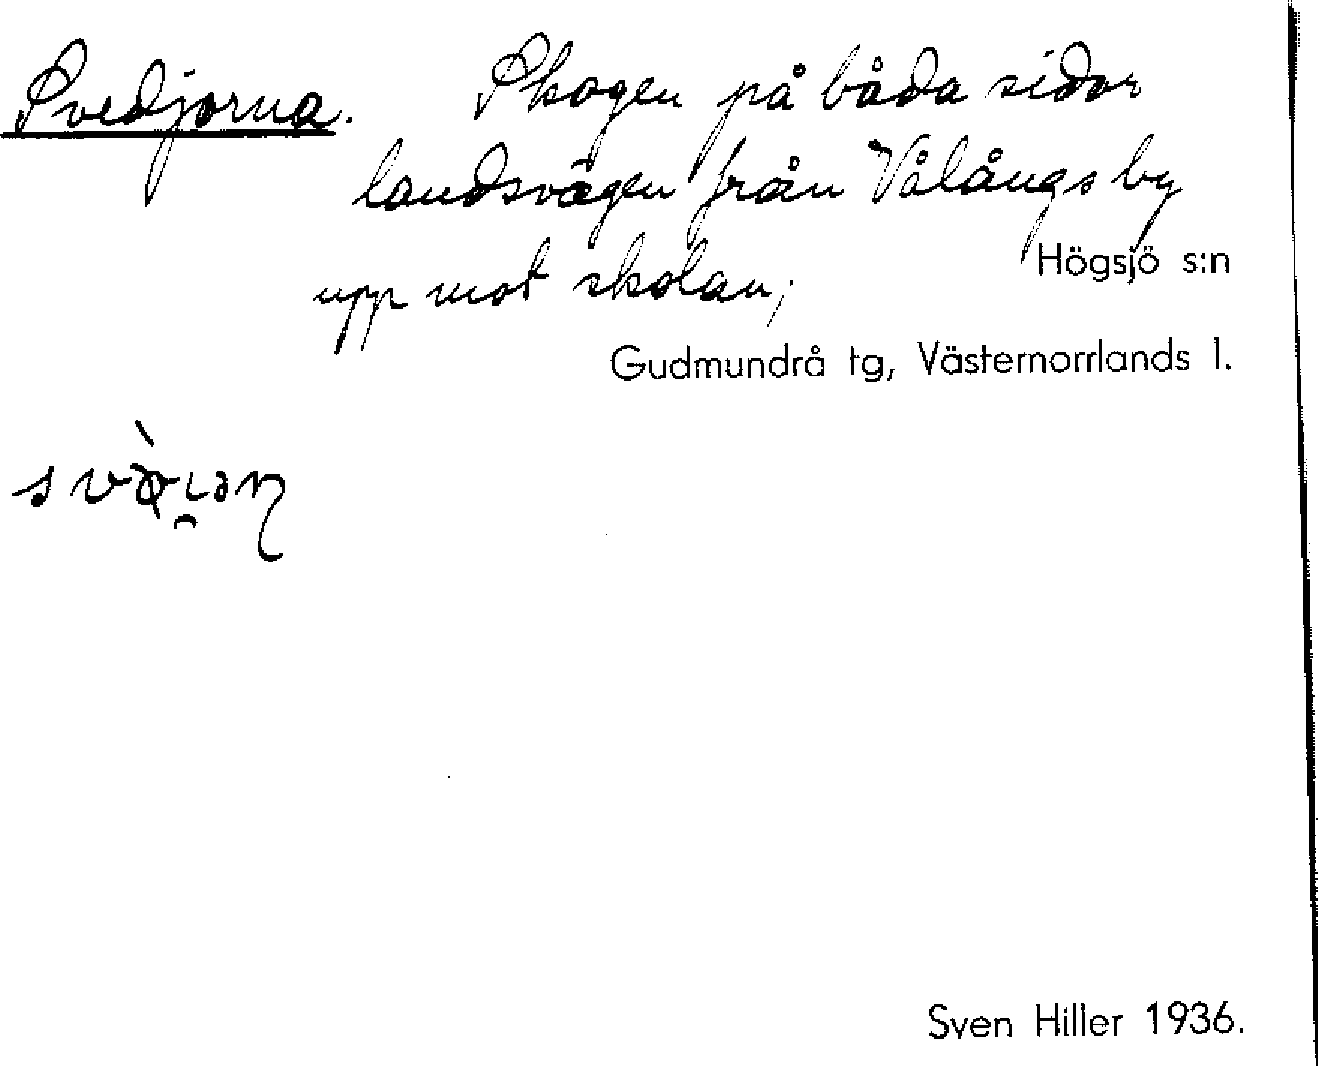 Svedjorna. Skogen på båda sidor
landsvägen från Vålångs by
upp mot skolan;
Högsjö s:n
Gudmundrå tg, Västernorrlands l.
Sven Hiller 1936.